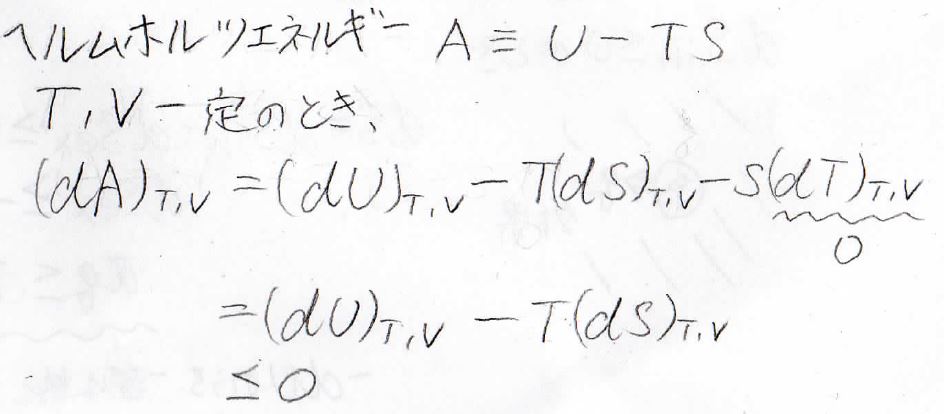 ヘルムホルツエネルギー A ≡ U − TS
T, V 一定のとき、
(dA)T,V = (dU)T,V − T(dS)T,V − S(dT)T,V
0
= (dU)T,V − T(dS)T,V
≤ 0